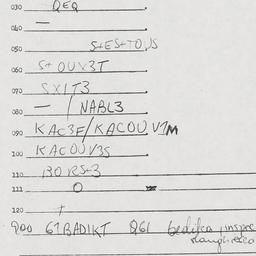 030 QEQ
040 —
050 S+ES+TO,JS
060 S+ OUX3T
070 SX1T3
080 — / NABL3
090 KAC3F/KACOU V1M
100 KACOUV3S
110 130RS+3
111 O
120 +
900 61BADIKT Q61